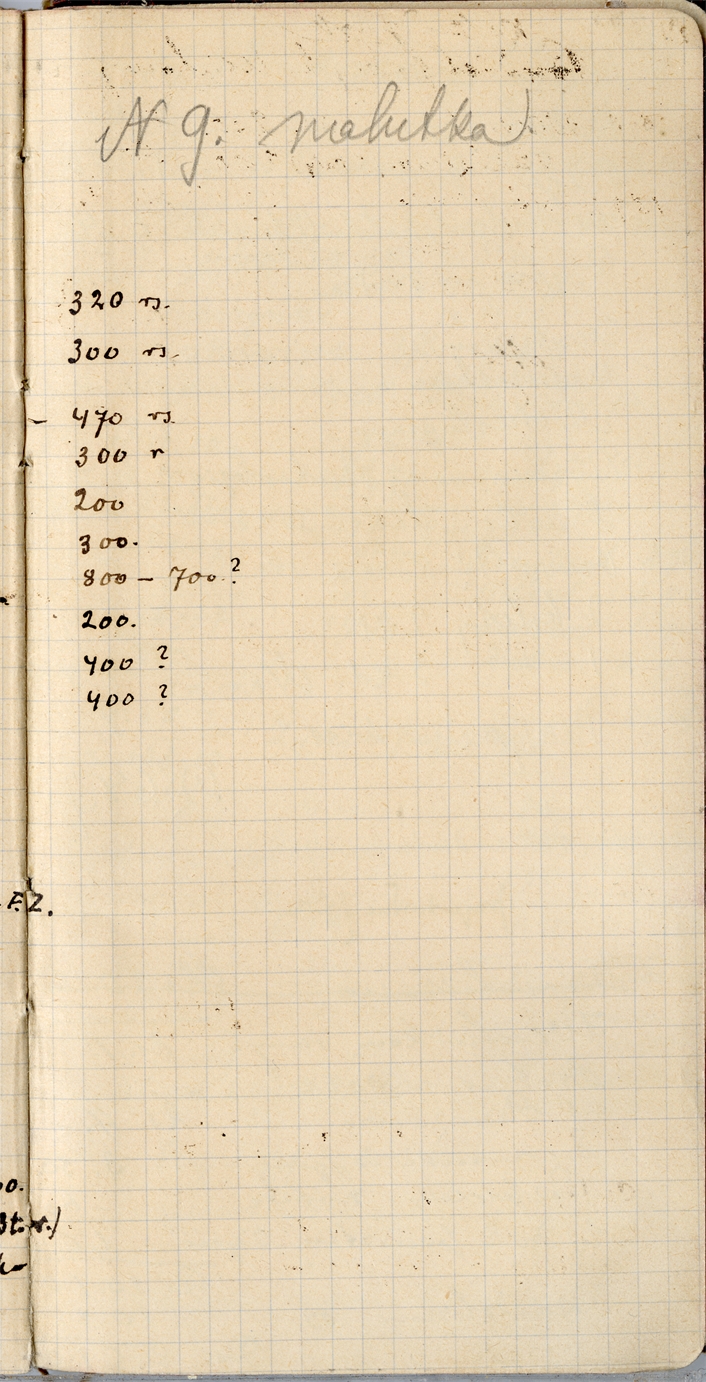 N 9. malutka).
320 rs.
300 rs.
– 470 rs.
300 r
200
300.
800 – 700.?
200.
400 ?
400 ?
F.Z.